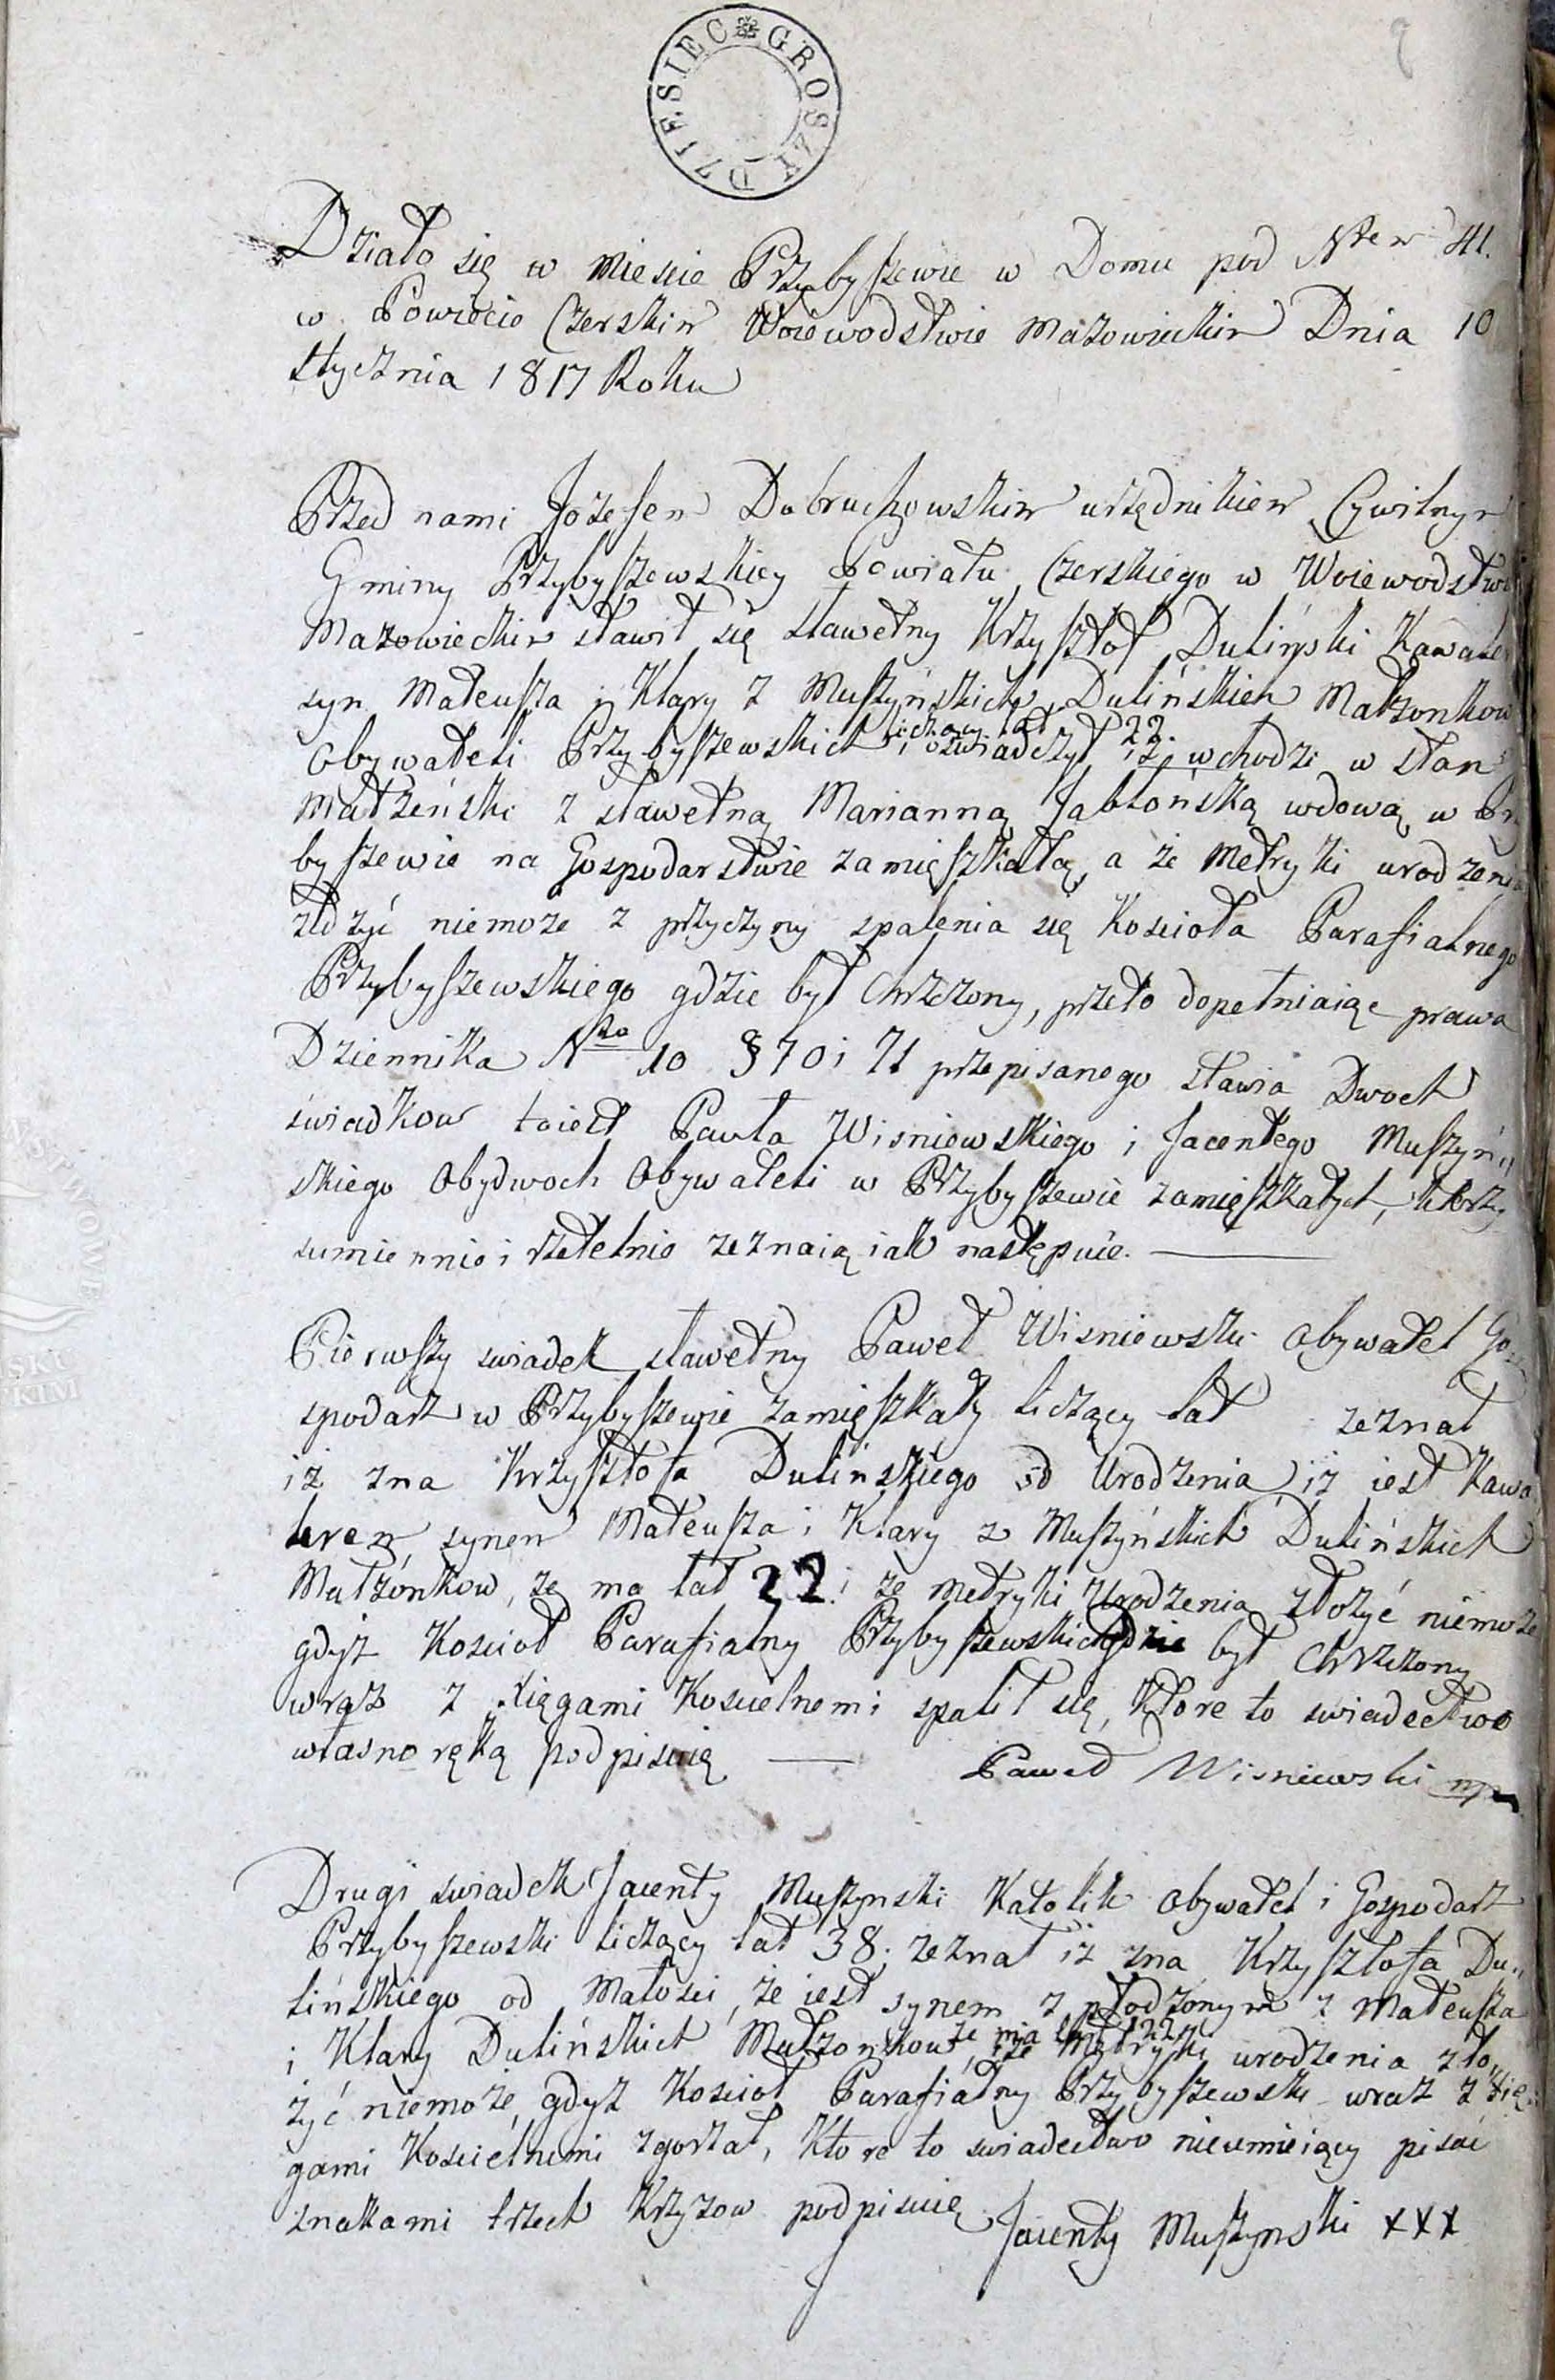 DZIESIEC GROSZY
9
Działo się w Miescie Przybyszewie w Domu pod Nrem 41.
w Powiecie Czerskim Woiewodstwie Mazowieckim Dnia 10
stycznia 1817 Roku
Przed nami Jozefem Dobruchowskim urzędnikiem Cywilnym
Gminy Przybyszewskiey Powiatu Czerskiego w Woiewodstwie
Mazowieckim stawił się sławetny Krzysztof Duliński Kawaler
syn Mateusza i Klary z Muszyńskich Dulińskich Małżonkow
liczący lat 22.
Obywateli Przybyszewskich i oświadczył iż wchodzi w stan
Małżeński z sławetną Marianną Jabłońską wdową w Przy
byszewie na Gospodarstwie zamięszkałą, a że Metryki urodzenia
złożyć niemoże z przyczyny spalenia się Kościoła Parafialnego
Przybyszewskiego gdzie był Chrzczony, przeto dopełniaiąc prawa
Dziennika Nro 10 § 70 i 71 przepisanego stawia Dwoch
świadkow toiest Pawła Wisniewskiego i Jacentego Muszyń„
skiego Obydwoch Obywateli w Przybyszewie zamięszkałych, którzy
sumiennie i rzetelnie zeznaią iak następuie.
Pierwszy swiadek sławetny Paweł Wisniewski Obywatel Go„
spodarz w Przybyszewie zamięszkały liczący lat zeznał
iż zna Krzysztofa Dulińskiego od Urodzenia, iż iest Kawa„
lerem synem Mateusza i Klary z Muszyńskich Dulińskich
Małżonkow, że ma lat 22. i że Metryki Urodzenia złożyć niemoże
gdyż Kościoł Parafialny Przybyszewski gdzie był Chrzczony
wraz z xięgami Koscielnemi spalił się, które to swiadectwo
własno ręką podpisuię Paweł Wisniewski mp
Drugi swiadek Jacenty Muszynski Katolik Obywatel i Gospodarz
Przybyszewski liczący lat 38. zeznał iż zna Krzysztofa Du„
lińskiego od Małości, że iest synem z płodzonym z Mateusza
że ma lat 22
i Klary Dulińskich Małżonkow, i że Metryki urodzenia zło„
żyć niemoże, gdyż Kościoł Parafialny Przybyszewski wraz z xię„
gami Kościelnemi zgorzał, Które to swiadectwo nieumieiący pisać
znakami trzech Krzyżow podpisuię Jacenty Muszynski XXX